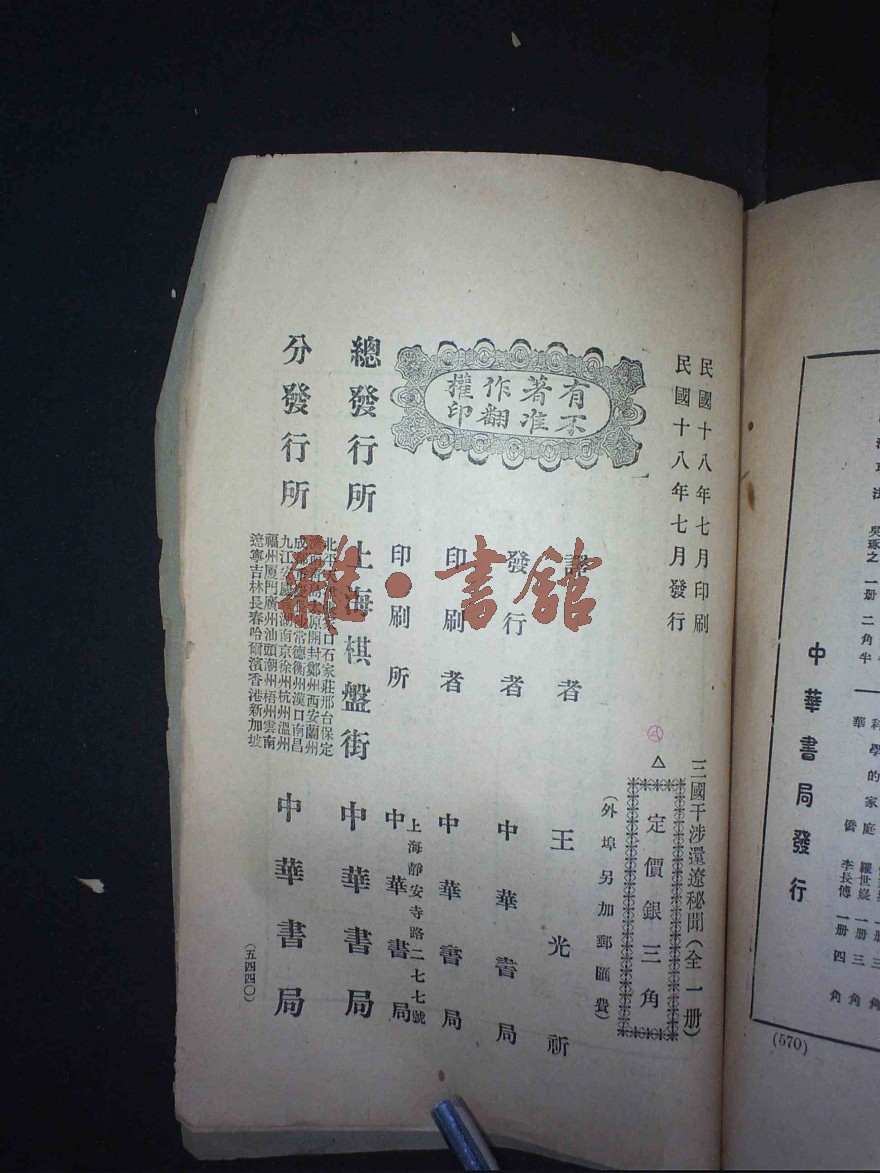 民國十八年七月印刷
民國十八年七月發行
三國干涉還遼秘聞(全一册)
定價銀三角
(外埠另加郵匯費)
有著作權
不准翻印
譯者 王光祈
發行者 中華書局
印刷者 中華書局
上海靜安寺路二七七號
印刷所 中華書局
總發行所 上海棋盤街 中華書局
分發行所
口石家莊邢台保定
原開封鄭州西安蘭州
常德衡州漢口南昌
南京徐州杭州溫州
福州廈門廣州汕頭潮州梧州雲南
遼寧吉林長春哈爾濱香港新加坡
中華書局
(五四四〇)
雜·書館
吳琢之 一册 二角半
科學的家庭 羅世嶷 一册 三角
華僑 李長傅 一册 四角
中華書局發行
(570)